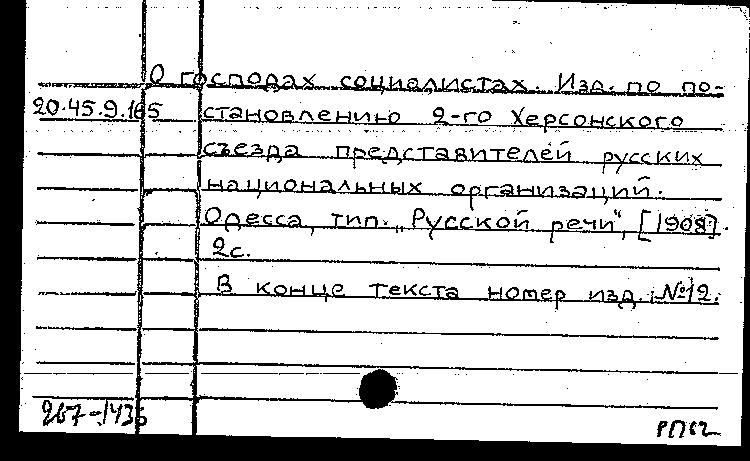 О господах социалистах. Изд. по по-
20.45.9.165 становлению 2-го Херсонского
съезда представителей русских
национальных организаций.
Одесса, тип. „Русской речи", [1908].
2с.
В конце текста номер изд.: №12.
267-1436